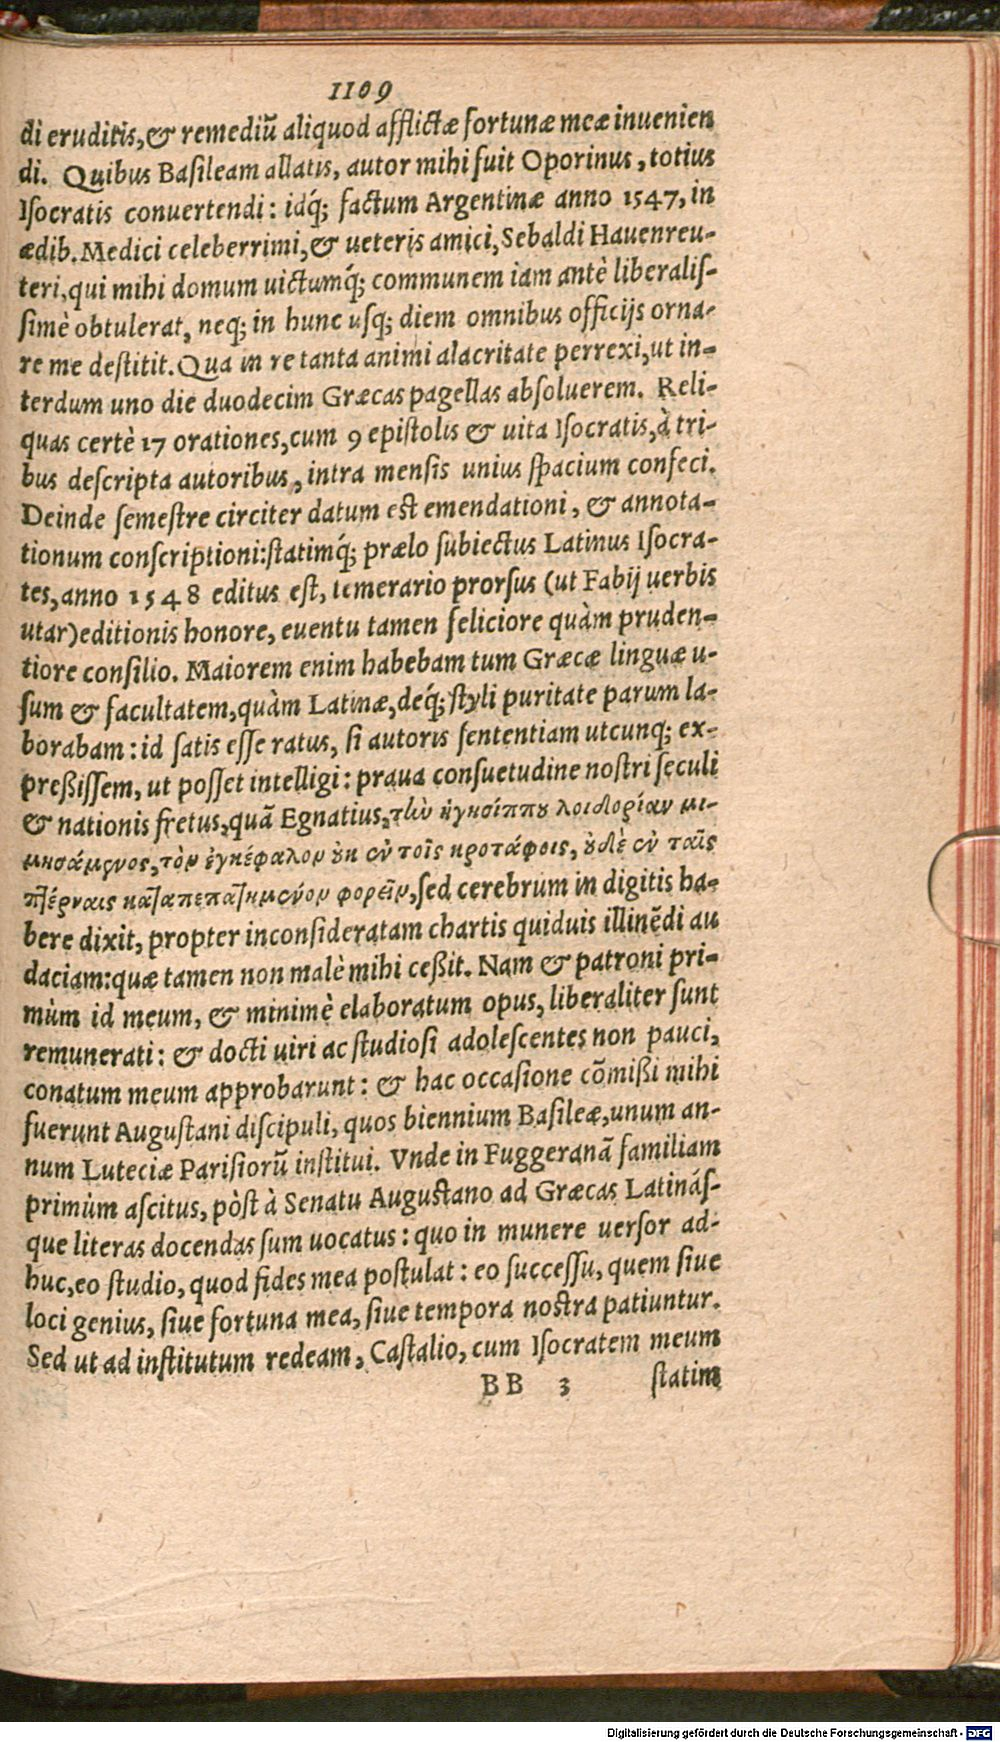 1109
di eruditis, & remediũ aliquod afflictæ fortunæ meæ inuenien
di. Quibus Basileam allatis, autor mihi fuit Oporinus, totius
Isocratis conuertendi: idq́; factum Argentinæ anno 1547, in
ædib. Medici celeberrimi, & ueteris amici, Sebaldi Hauenreu-
teri, qui mihi domum uictumq́; communem iam antè liberalis-
simè obtulerat, neq; in hunc usq; diem omnibus officijs orna-
re me destitit. Qua in re tanta animi alacritate perrexi, ut in-
terdum uno die duodecim Græcas pagellas absoluerem. Reli-
quas certè 17 orationes, cum 9 epistolis & uita Isocratis, à tri-
bus descripta autoribus, intra mensis unius spacium confeci.
Deinde semestre circiter datum est emendationi, & annota-
tionum conscriptioni: statimq́; prælo subiectus Latinus Isocra-
tes, anno 1548 editus est, temerario prorsus (ut Fabij uerbis
utar) editionis honore, euentu tamen feliciore quàm pruden-
tiore consilio. Maiorem enim habebam tum Græcæ linguæ u-
sum & facultatem, quàm Latinæ, deq́; styli puritate parum la-
borabam: id satis esse ratus, si autoris sententiam utcunq; ex-
preßissem, ut posset intelligi: praua consuetudine nostri seculi
& nationis fretus, quã Egnatius, τὴν ἡγησίππου λοιδορίαν μι-
μησάμενος, τὸν ἐγκέφαλον οὐκ ἐν τοῖς κροτάφοις, οὐδὲ ἐν ταῖς
πτέρναις καταπεπατημένον φορεῖν, sed cerebrum in digitis ha-
bere dixit, propter inconsideratam chartis quiduis illinẽdi au
daciam: quæ tamen non malè mihi ceßit. Nam & patroni pri-
mùm id meum, & minimè elaboratum opus, liberaliter sunt
remunerati: & docti uiri ac studiosi adolescentes non pauci,
conatum meum approbarunt: & hac occasione cõmißi mihi
fuerunt Augustani discipuli, quos biennium Basileæ, unum an-
num Luteciæ Parisiorũ institui. Vnde in Fuggeranã familiam
primùm ascitus, pòst à Senatu Augustano ad Græcas Latinás-
que literas docendas sum uocatus: quo in munere uersor ad-
huc, eo studio, quod fides mea postulat: eo successu, quem siue
loci genius, siue fortuna mea, siue tempora nostra patiuntur.
Sed ut ad institutum redeam, Castalio, cum Isocratem meum
BB 3 statim
Digitalisierung gefördert durch die Deutsche Forschungsgemeinschaft - DFG